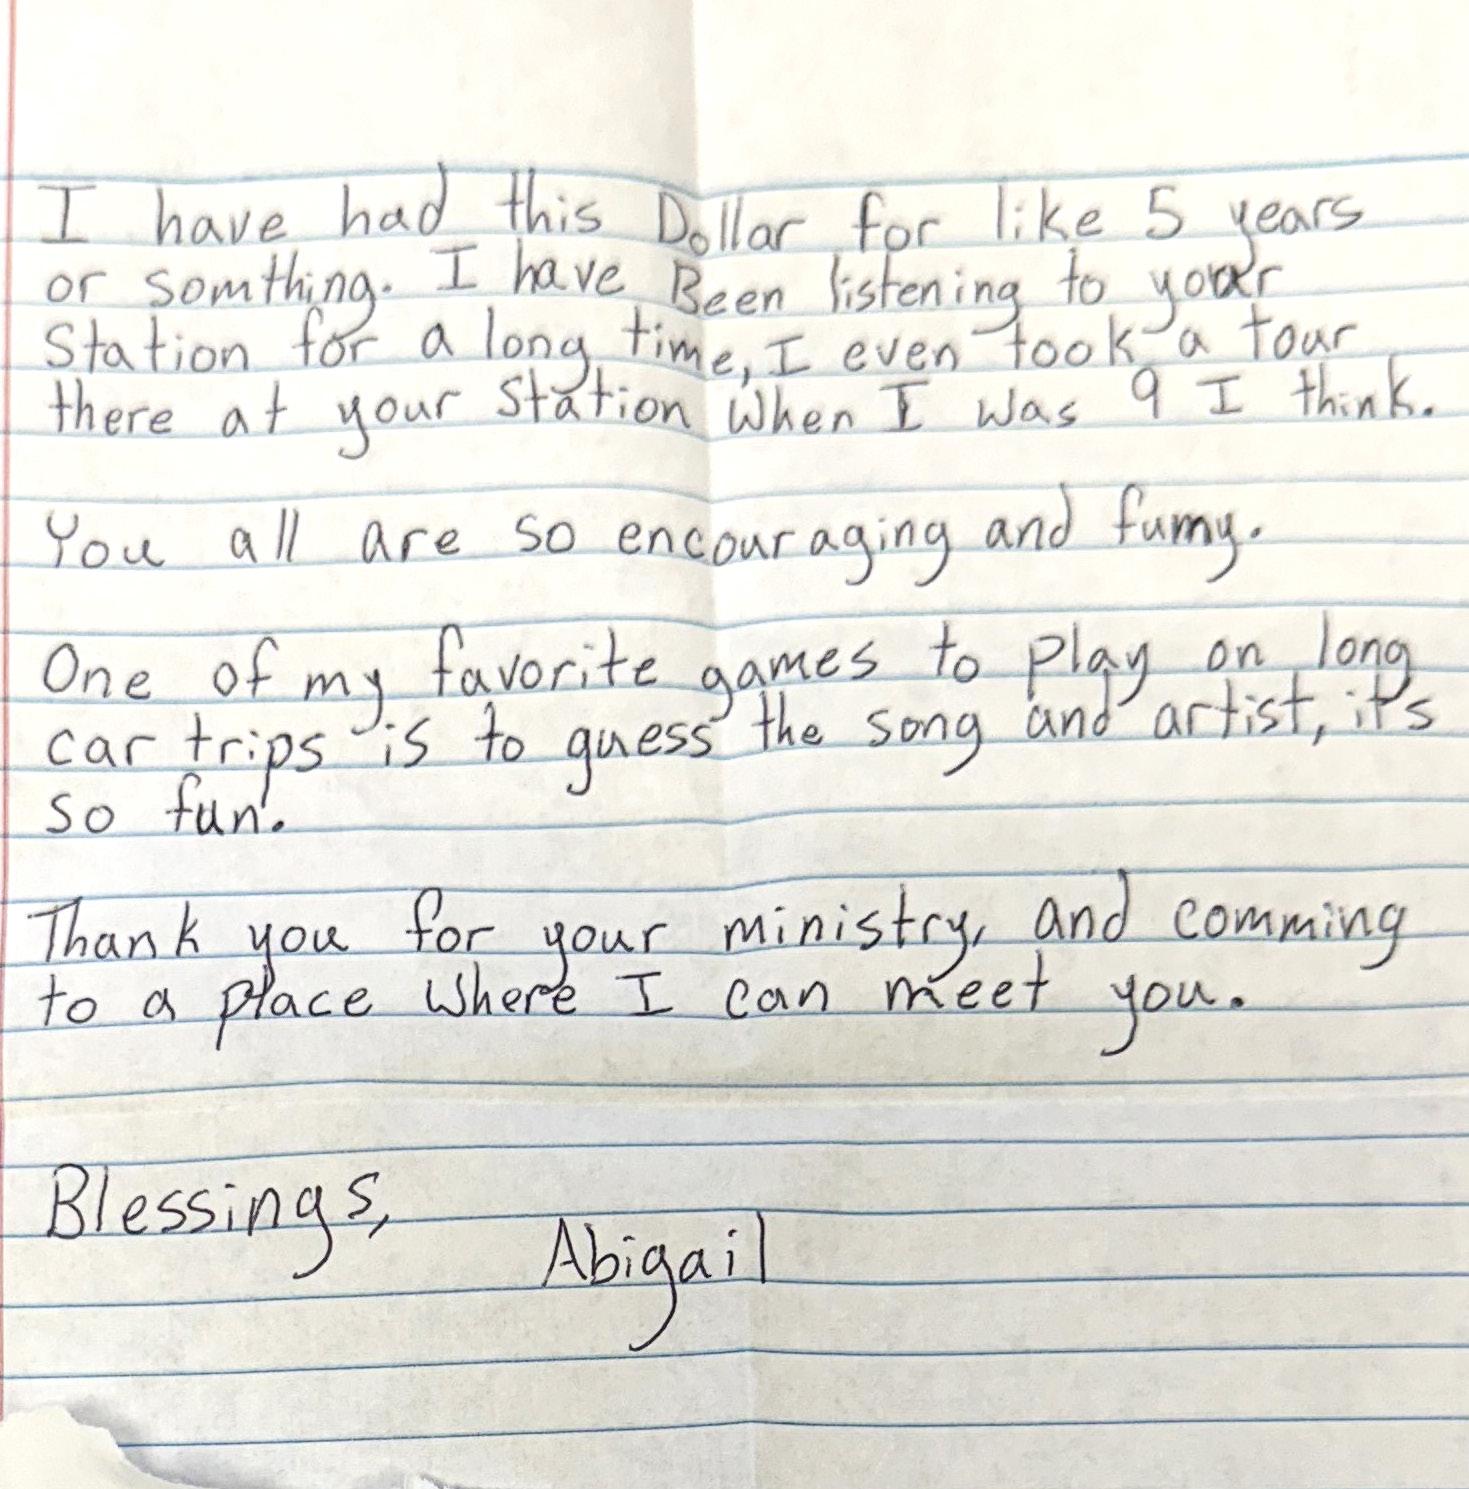 I have had this Dollar for like 5 years
or somthing. I have Been listening to your
Station for a long time, I even took a tour
there at your Station When I was 9 I think.
You all are so encouraging and funny.
One of my favorite games to play on long
car trips is to guess the song and artist, it's
so fun.
Thank you for your ministry, and comming
to a place where I can meet you.
Blessings,
Abigail